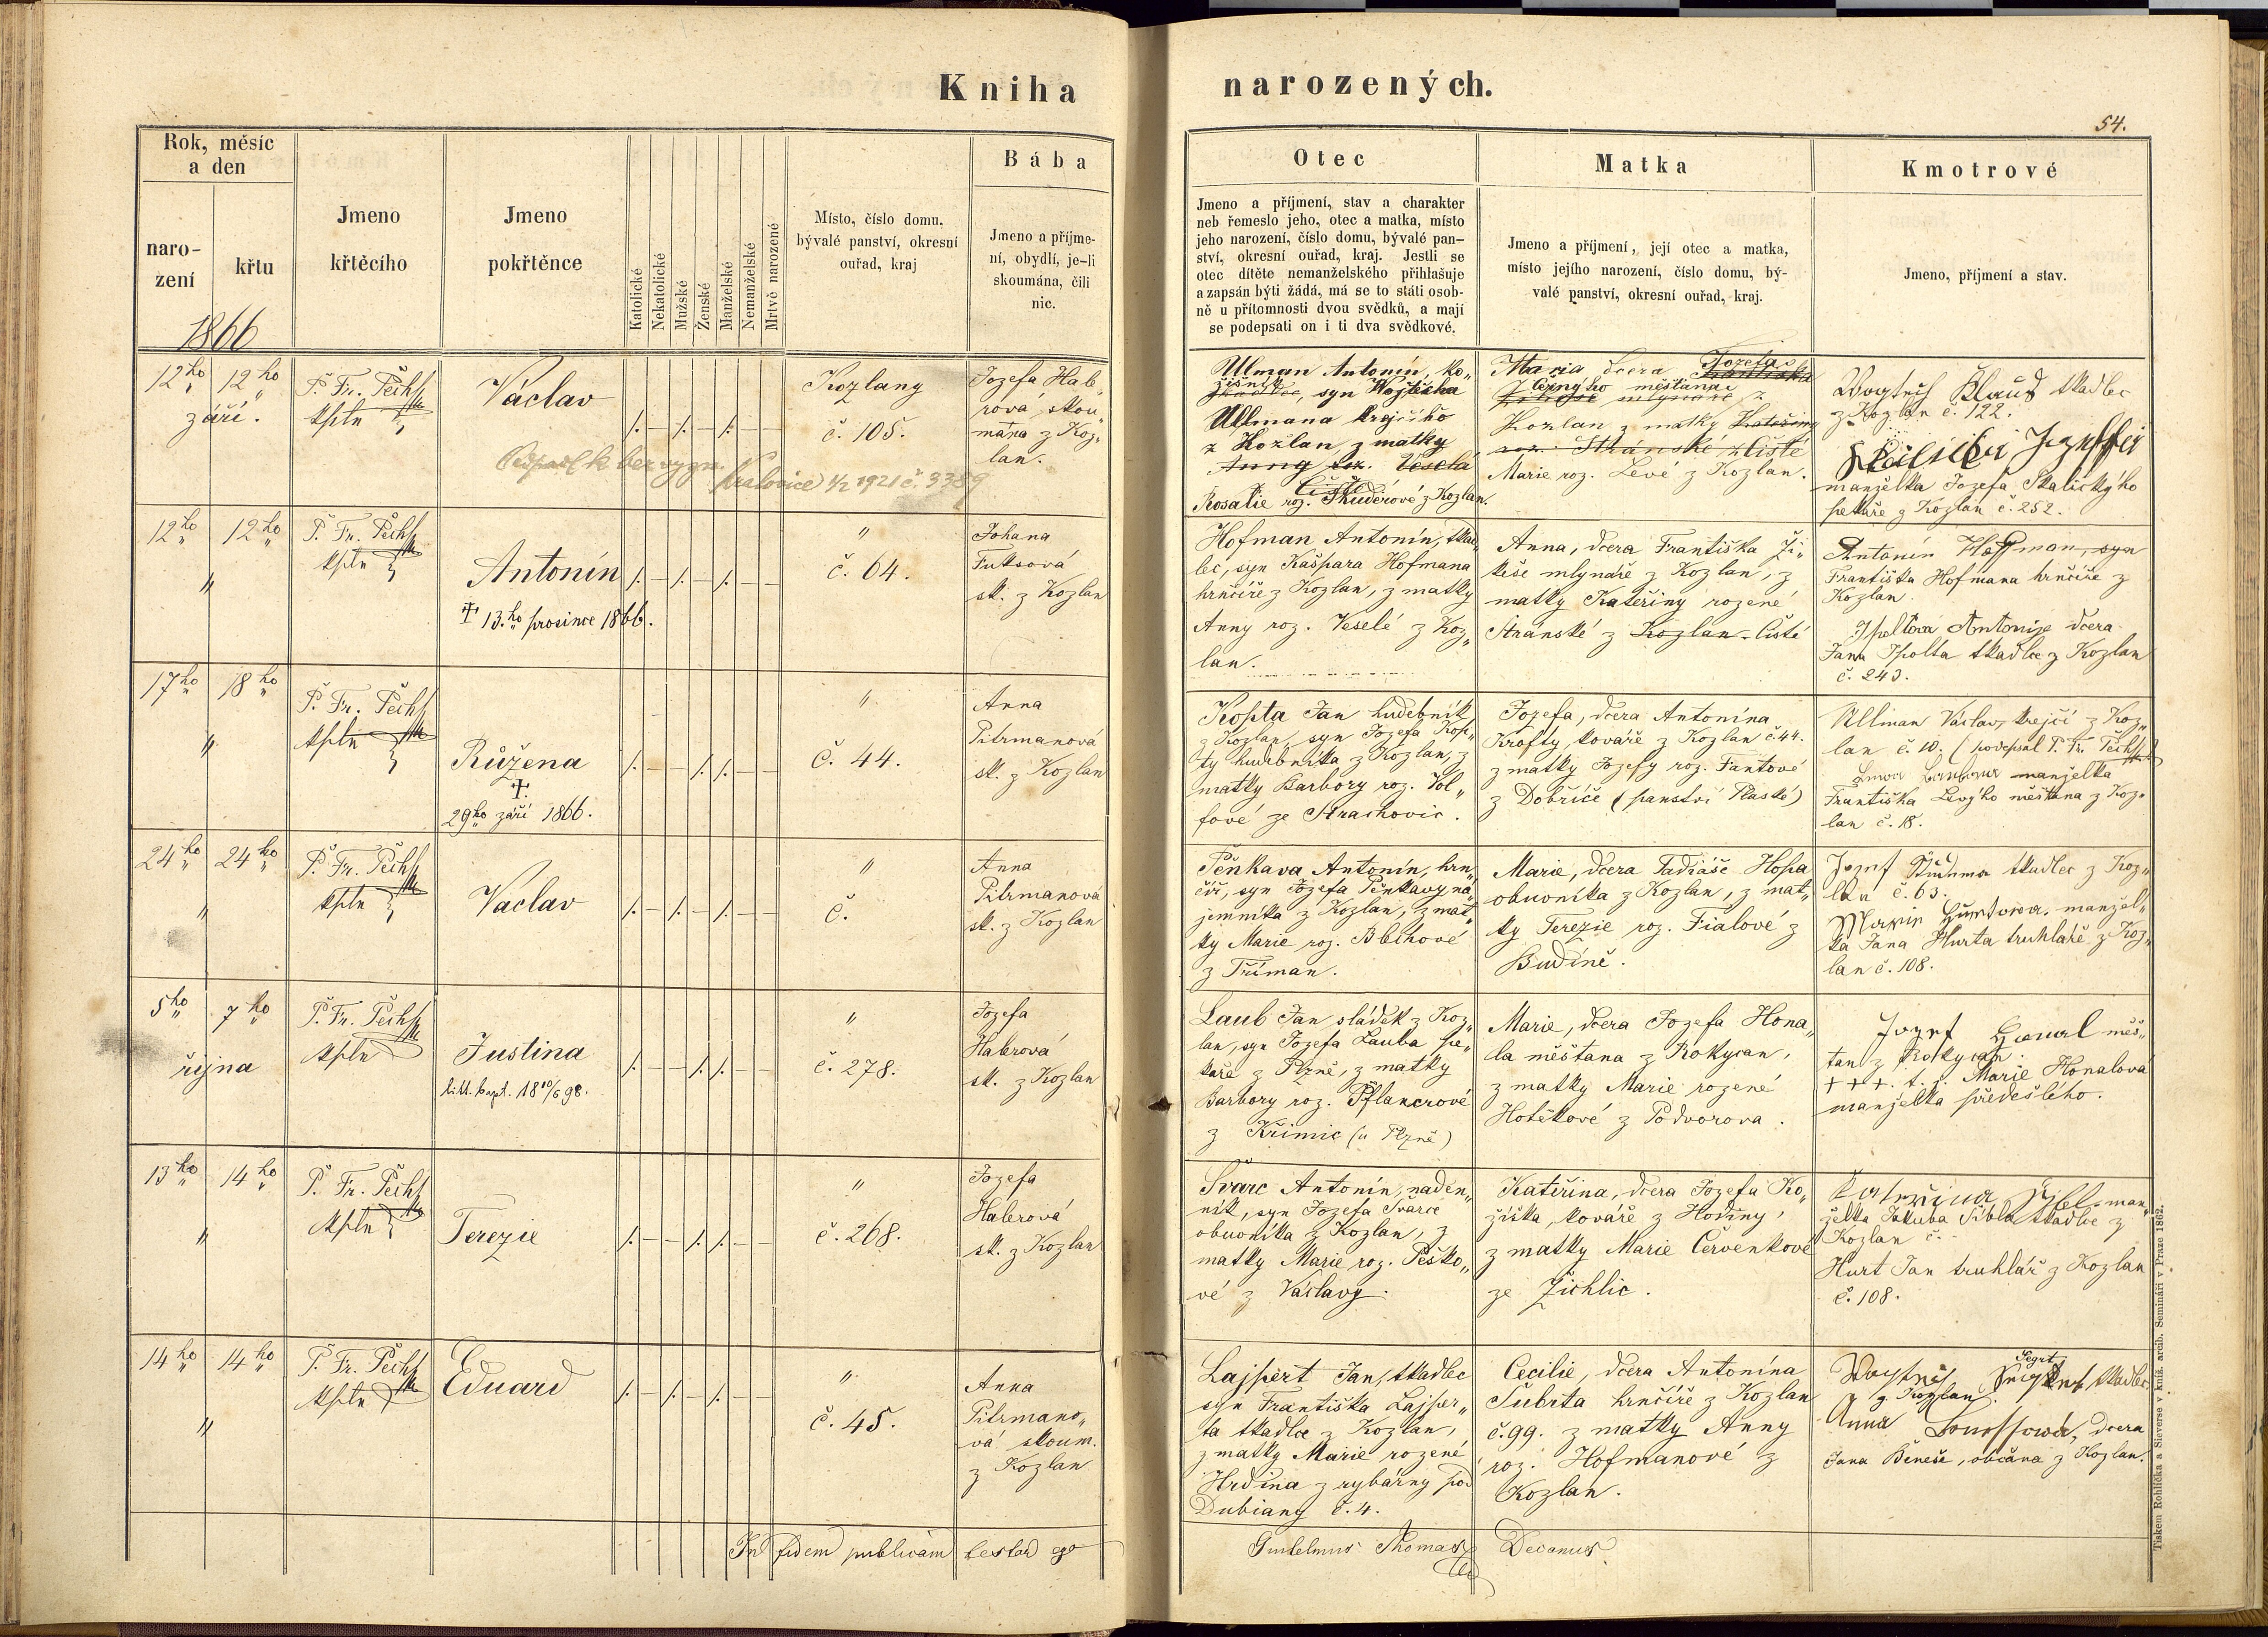 Kniha
narozených.
54.
Rok, měsíc
a den
naro-
zení
křtu
1866
Jmeno
křtěcího
Jmeno
pokřtěnce
Katolické
Nekatolické
Mužské
Ženské
Manželské
Nemanželské
Mrtvě narozené
Místo, číslo domu,
bývalé panství, okresní
ouřad, kraj
Bába
Jmeno a příjme-
ní, obydlí, je-li
skoumána, čili
nic.
Otec
Jmeno a příjmení, stav a charakter
neb řemeslo jeho, otec a matka, místo
jeho narození, číslo domu, bývalé pan-
ství, okresní ouřad, kraj. Jestli se
otec dítěte nemanželského přihlašuje
a zapsán býti žádá, má se to státi osob-
ně u přítomnosti dvou svědků, a mají
se podepsati on i ti dva svědkové.
Matka
Jmeno a příjmení, její otec a matka,
místo jejího narození, číslo domu, bý-
valé panství, okresní ouřad, kraj.
Kmotrové
Jmeno, příjmení a stav.
12ho
12ho
září.
P. Fr. Pech
kpln
Václav
Kralovice 1/2 1921 č. 3389
Kozlany
č. 105.
Jozefa Hab„
rová, skou„
mána z Koz„
lan.
Ulman Antonín, ko„
žišník
syn Wojtěcha
Ullmana krejčího
z Kozlan, z matky
Anny roz. Veselé
Rosalie roz. Škuderové z Kozlan.
Maria dcera Jozefa
Černýho měštana
Kozlan z matky Kateřiny
roz. Stránské z Čisté
Marie roz. Levé z Kozlan.
tkadlec
z Kozlan č. 122.
manželka Jozefa Skalickýho
pekaře z Kozlan č. 252.
12ho
12ho
"
P. Fr. Pech
kpln
Antonín
† 13.ho prosince 1866.
"
č. 64.
Johana
Fuksová
sk. z Kozlan
Hofman Antonín, tkad„
lec, syn Kašpara Hofmana
hrnčíře z Kozlan, z matky
Anny roz. Veselé z Koz„
lan.
Anna, dcera Františka Ži„
keše mlynáře z Kozlan, z
matky Kateřiny rozené
Stránské z Kozlan Čisté
Antonín Hoffman, syn
Františka Hofmana hrnčíře z
Kozlan.
Ipoltova Antonije dcera
Jana Ipolta tkadlce z Kozlan
č. 243.
17ho
18ho
"
P. Fr. Pech
kpln
Růžena
†.
29ho září 1866.
"
č. 44.
Anna
Pitrmanová
sk. z Kozlan
Kopta Jan hudebník
z Kozlan, syn Jozefa Kop„
ty hudebníka z Kozlan, z
matky Barbory roz. Vol„
fové ze Strachovic.
Jozefa, dcera Antonína
Krofty, kováře z Kozlan č. 44.
z matky Jozefy roz. Fantové
z Dobříče (panství Plaské)
Ullman Václav, krejčí z Koz„
lan č. 10. (podepsal P. Fr. Pech)
manželka
Františka Levýho měštana z Koz„
lan č. 18.
24ho
24ho
"
P. Fr. Pech
kpln
Václav
"
č.
Anna
Pitrmanová
sk. z Kozlan
Pěnkava Antonín, hrn„
číř, syn Jozefa Pěnkavy ná„
jemníka z Kozlan, z mat„
ky Marie roz. Blthové
z Tříman.
Marie, dcera Tadiáše Hopa
obuvníka z Kozlan, z mat„
ky Terezie roz. Fialové z
Budíně.
tkadlec z Koz„
lan č. 63.
manžel„
ka Jana Hurta truhláře z Koz„
lan č. 108.
5ho
7ho
října
P. Fr. Pech
kpln
Justina
litt. bapt. 18 10/6 98.
"
č. 278.
Jozefa
Haberová
sk. z Kozlan
Laub Jan, sládek z Koz„
lan, syn Jozefa Lauba pe„
kaře z Plzně, z matky
Barbory roz. Pflancrové
z Křimic (u Plzně)
Marie, dcera Jozefa Hona„
la měštana z Rokycan,
z matky Marie rozené
Hotěkové z Podvorova.
Jozef Honal měš„
tan z Rokycan.
+++. t. j. Marie Honalová
manželka předešlého.
13ho
14ho
"
P. Fr. Pech
kpln
Terezie
"
č. 268.
Jozefa
Haberová
sk. z Kozlan
Švarc Antonín, náden„
ník, syn Jozefa Švarce
obuvníka z Kozlan, z
matky Marie roz. Peško„
vé z Václavy.
Kateřina, dcera Jozefa Ko„
žíška, kováře z Hodiny,
z matky Marie Červenkové
ze Žichlic.
man„
želka Jakuba Šibla tkadlce z
Kozlan č.
Hurt Jan truhlář z Kozlan
č. 108.
14ho
14ho
"
P. Fr. Pech
kpln
Eduard
"
č. 45.
Anna
Pitrmano„
vá skoum.
z Kozlan
Lajpert Jan, tkadlec
syn Františka Lajper„
ta tkadlce z Kozlan,
z matky Marie rozené
Hrdina z rybárny pod
Dubiany č. 4.
Cecilie, dcera Antonína
Šubrta hrnčíře z Kozlan
č. 99. z matky Anny
roz. Hofmanové z
Kozlan.
tkadlec
z Kozlan.
Anna dcera
Jana Beneše, občana z Kozlan.
In fidem publicam testor ego
Guilelmus Thomas
Decanus.
Tiskem Rohlíčka a Sieverse v kníž. arcib. Semináři v Praze 1862.